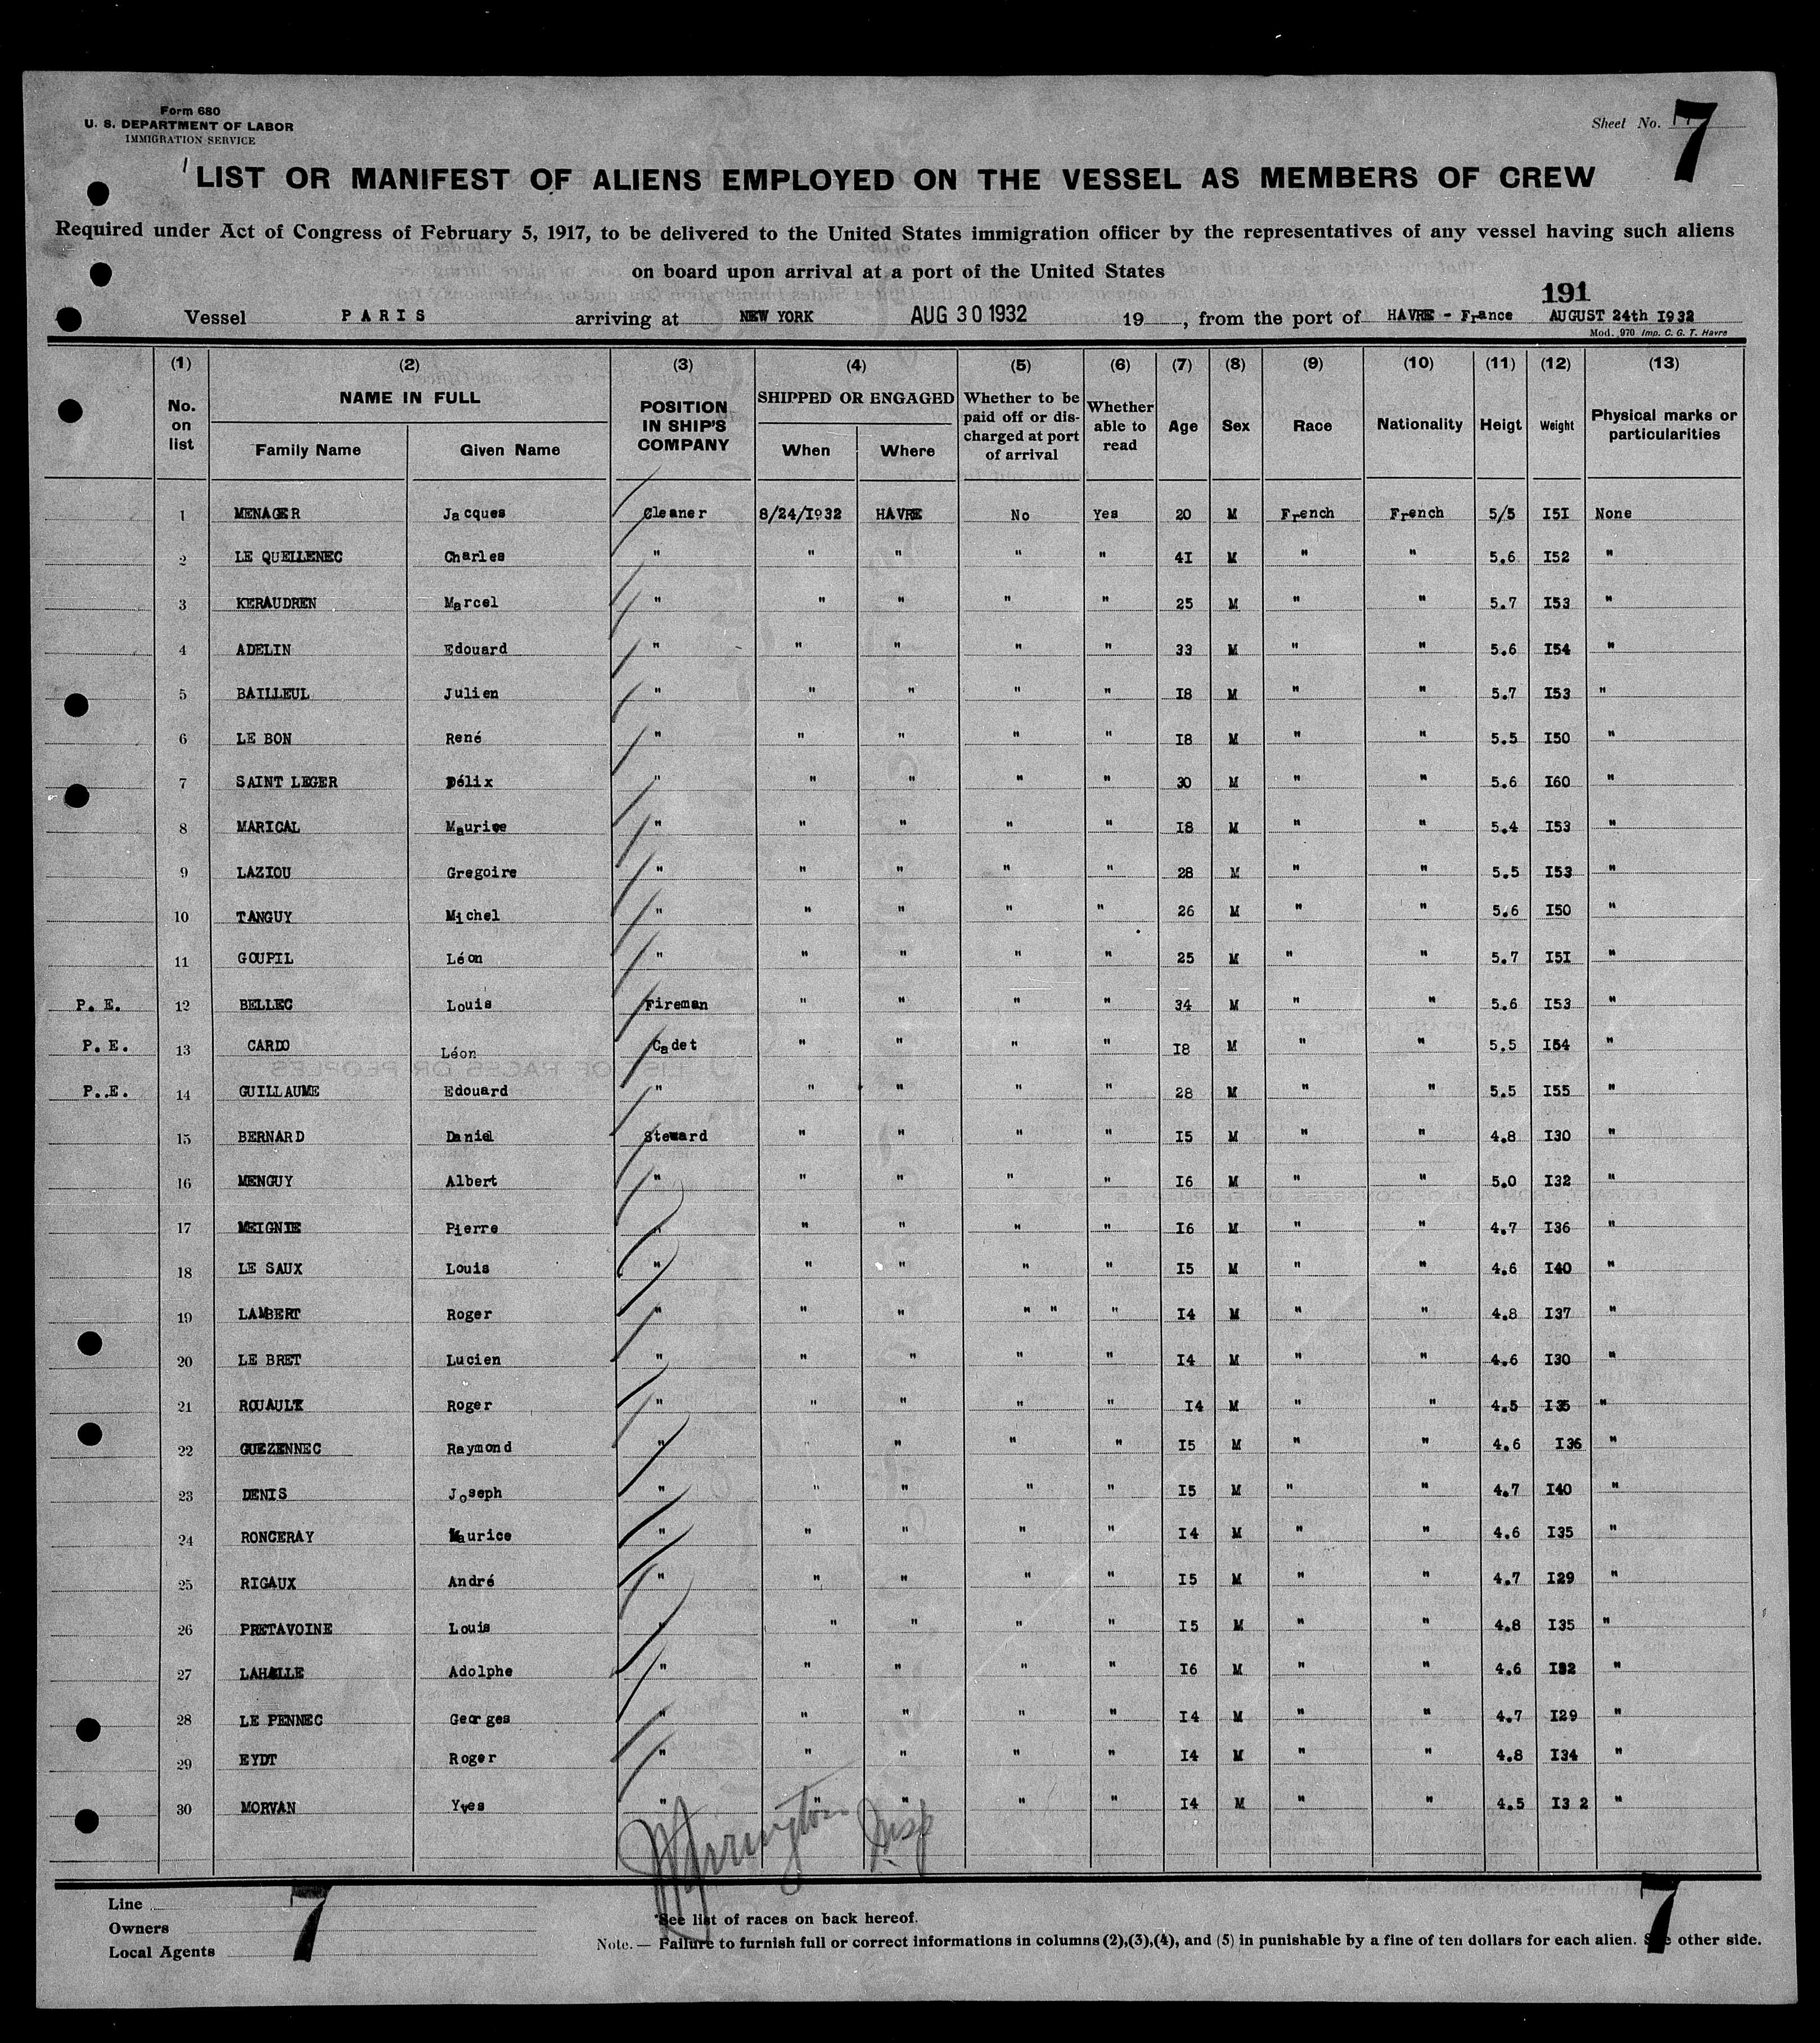 Form 680
U. S. DEPARTMENT OF LABOR
IMMIGRATION SERVICE
Sheet No. 7
LIST OR MANIFEST OF ALIENS EMPLOYED ON THE VESSEL AS MEMBERS OF CREW
Required under Act of Congress of February 5, 1917, to be delivered to the United States immigration officer by the representatives of any vessel having such aliens
on board upon arrival at a port of the United States
191
Vessel PARIS arriving at NEW YORK AUG 30 1932 19 , from the port of HAVRE - France AUGUST 24th I932
Mod. 970 Imp. C. G. T. Havre
(1) (2) (3) (4) (5) (6) (7) (8) (9) (10) (11) (12) (13)
No. on list NAME IN FULL Family Name Given Name POSITION IN SHIP'S COMPANY SHIPPED OR ENGAGED When Where Whether to be paid off or discharged at port of arrival Whether able to read Age Sex Race Nationality Heigt Weight Physical marks or particularities
1 MENAGER Jacques Cleaner 8/24/I932 HAVRE No Yes 20 M French French 5/5 I5I None
2 LE QUELLENEC Charles " " " " " 4I M " " 5.6 I52 "
3 KERAUDREN Marcel " " " " " 25 M " " 5.7 I53 "
4 ADELIN Edouard " " " " " 33 M " " 5.6 I54 "
5 BAILLEUL Julien " " " " " I8 M " " 5.7 I53 "
6 LE BON René " " " " " I8 M " " 5.5 I50 "
7 SAINT LEGER Délix " " " " " 30 M " " 5.6 I60 "
8 MARICAL Maurice " " " " " I8 M " " 5.4 I53 "
9 LAZIOU Gregoire " " " " " 28 M " " 5.5 I53 "
10 TANGUY Michel " " " " " 26 M " " 5.6 I50 "
11 GOUPIL Léon " " " " " 25 M " " 5.7 I5I "
P. E. 12 BELLEC Louis Fireman " " " " 34 M " " 5.6 I53 "
P. E. 13 CARDO Léon Cadet " " " " I8 M " " 5.5 I54 "
P. E. 14 GUILLAUME Edouard " " " " " 28 M " " 5.5 I55 "
15 BERNARD Daniel Steward " " " " I5 M " " 4.8 I30 "
16 MENGUY Albert " " " " " I6 M " " 5.0 I32 "
17 MEIGNIE Pierre " " " " " I6 M " " 4.7 I36 "
18 LE SAUX Louis " " " " " I5 M " " 4.6 I40 "
19 LAMBERT Roger " " " " " " I4 M " " 4.8 I37 "
20 LE BRET Lucien " " " " " I4 M " " 4.6 I30 "
21 ROUAULT Roger " " " " " I4 M " " 4.5 I35 "
22 GUEZENNEC Raymond " " " " " I5 M " " 4.6 I36 "
23 DENIS Joseph " " " " " I5 M " " 4.7 I40 "
24 RONCERAY Maurice " " " " " I4 M " " 4.6 I35 "
25 RIGAUX André " " " " " I5 M " " 4.7 I29 "
26 PRETAVOINE Louis " " " " " I5 M " " 4.8 I35 "
27 LAHALLE Adolphe " " " " " I6 M " " 4.6 I32 "
28 LE PENNEC Georges " " " " " I4 M " " 4.7 I29 "
29 EYDT Roger " " " " " I4 M " " 4.8 I34 "
30 MORVAN Yves " " " " " I4 M " " 4.5 I3 2 "
Insp
Line
Owners
Local Agents
7
7
*See list of races on back hereof.
Note. — Failure to furnish full or correct informations in columns (2),(3),(4), and (5) in punishable by a fine of ten dollars for each alien. See other side.